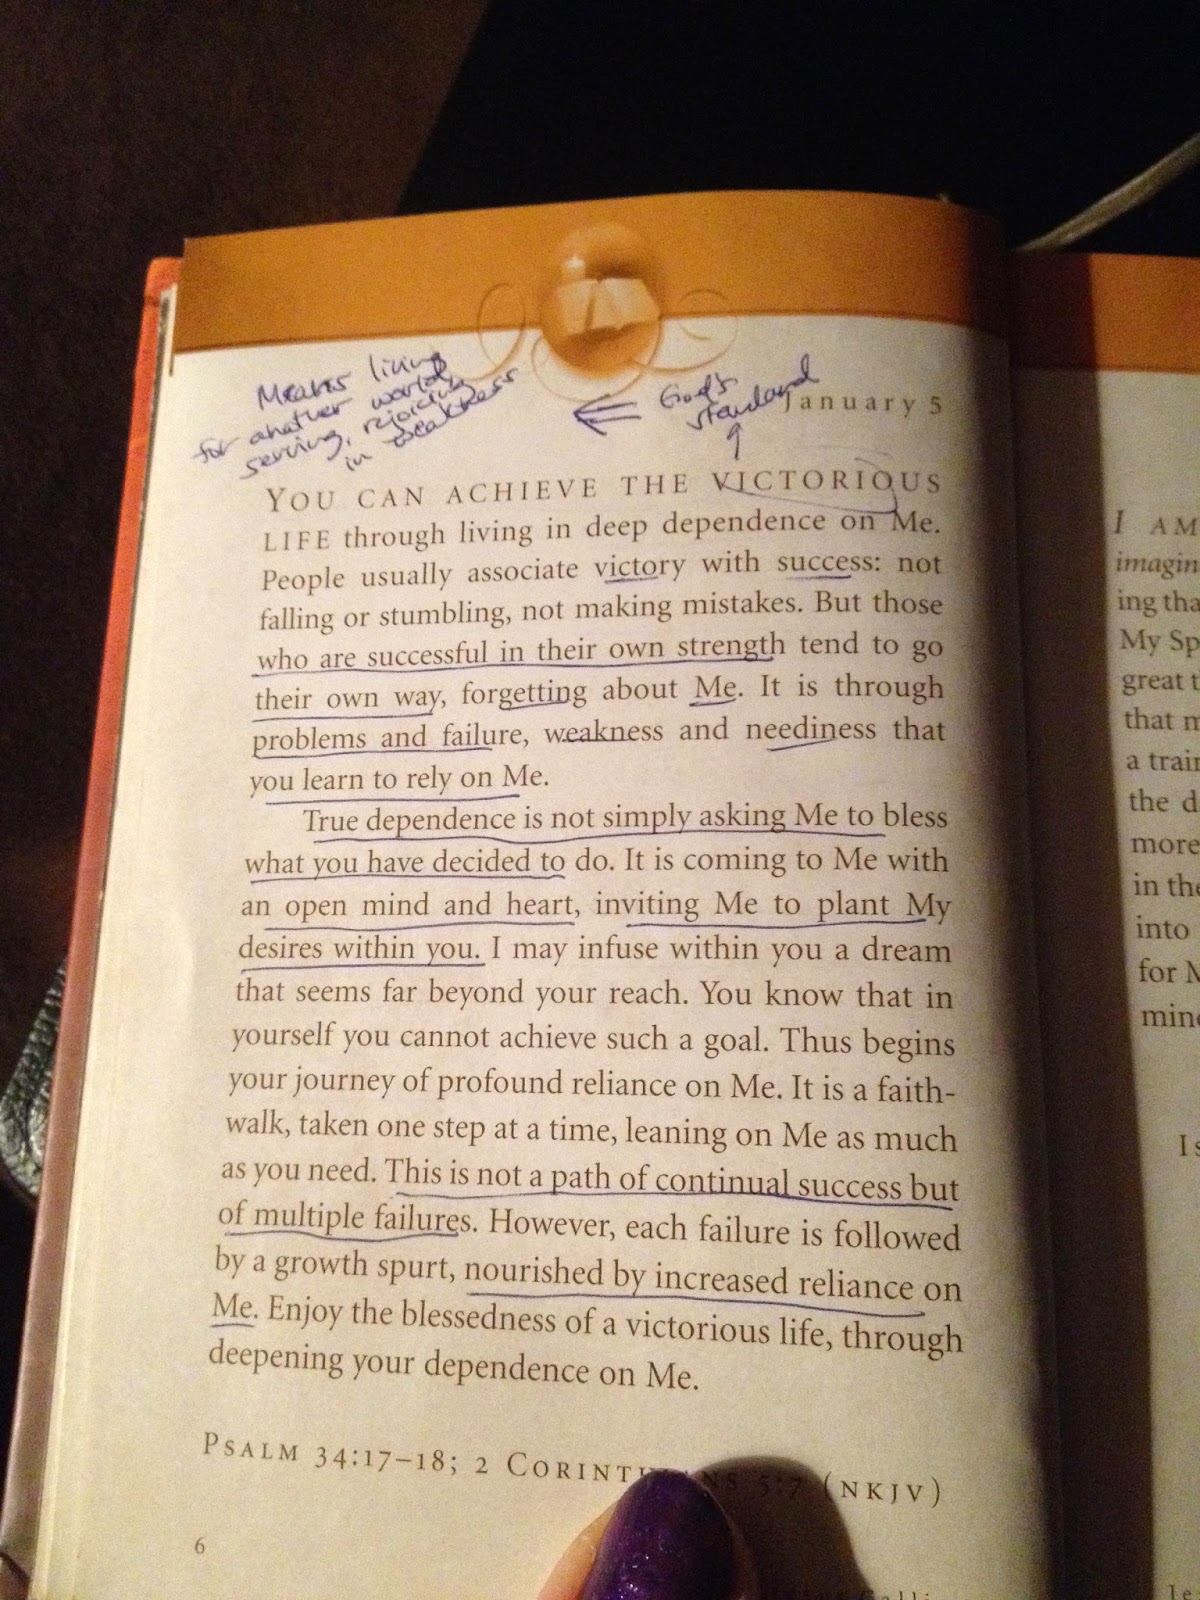 Means living
for another world,
serving, rejoicing
in weakness
God's
standard
January 5
YOU CAN ACHIEVE THE VICTORIOUS
LIFE through living in deep dependence on Me.
People usually associate victory with success: not
falling or stumbling, not making mistakes. But those
who are successful in their own strength tend to go
their own way, forgetting about Me. It is through
problems and failure, weakness and neediness that
you learn to rely on Me.
True dependence is not simply asking Me to bless
what you have decided to do. It is coming to Me with
an open mind and heart, inviting Me to plant My
desires within you. I may infuse within you a dream
that seems far beyond your reach. You know that in
yourself you cannot achieve such a goal. Thus begins
your journey of profound reliance on Me. It is a faith-
walk, taken one step at a time, leaning on Me as much
as you need. This is not a path of continual success but
of multiple failures. However, each failure is followed
by a growth spurt, nourished by increased reliance on
Me. Enjoy the blessedness of a victorious life, through
deepening your dependence on Me.
PSALM 34:17–18; 2 CORINTHIANS 5:7 (NKJV)
6
I AM
imagin
ing tha
My Sp
great t
that m
a train
the d
more
in the
into
for M
mind
I s